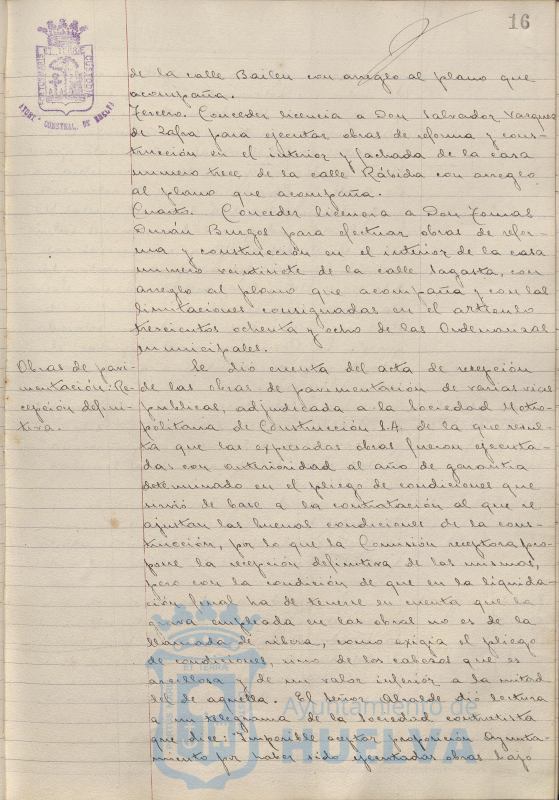 16
PORTUS MARIS ET TERRAE CUSTODIA
AYUNT. CONSTNAL. DE HUELVA
de la calle Bailen con arreglo al plano que
acompaña.
Tercero. Conceder licencia a Don Salvador Vazquez
de Zafra para ejecutar obras de reforma y cons-
trucción en el interior y fachada de la casa
numero trece de la calle Rábida con arreglo
al plano que acompaña.
Cuarto. Conceder licencia a Don Tomas
Durán Burgos para efectuar obras de refor-
ma y construcción en el interior de la casa
numero veintisiete de la calle Sagasta, con
arreglo al plano que acompaña y con las
limitaciones consignadas en el articulo
trescientos ochenta y ocho de las Ordenanzas
municipales.
Obras de pavi-
mentación: Re-
cepción defini-
tiva.
Se dió cuenta del acta de recepción
de las obras de pavimentación de varias vias
publicas, adjudicada a la Sociedad Metro-
politana de Construcción S.A. de la que resul-
ta que las expresadas obras fueron ejecuta-
das con anterioridad al año de garantia
determinado en el pliego de condiciones que
sirvió de base a la contratación al que se
ajustan las buenas condiciones de la cons-
trucción, por lo que la Comisión receptora pro-
pone la recepción definitiva de las mismas,
pero con la condición de que en la liquida-
ción final ha de tenerse en cuenta que la
grava empleada en las obras no es de la
llamada de ribera, como exigia el pliego
de condiciones, sino de los cabezos que es
arcillosa y de un valor inferior a la mitad
del de aquella. El Señor Alcalde dió lectura
a un telegrama de la Sociedad contratista
que dice: "Imposible aceptar proposición Ayunta-
miento por haber sido ejecutadas obras bajo
Ayuntamiento de
HUELVA